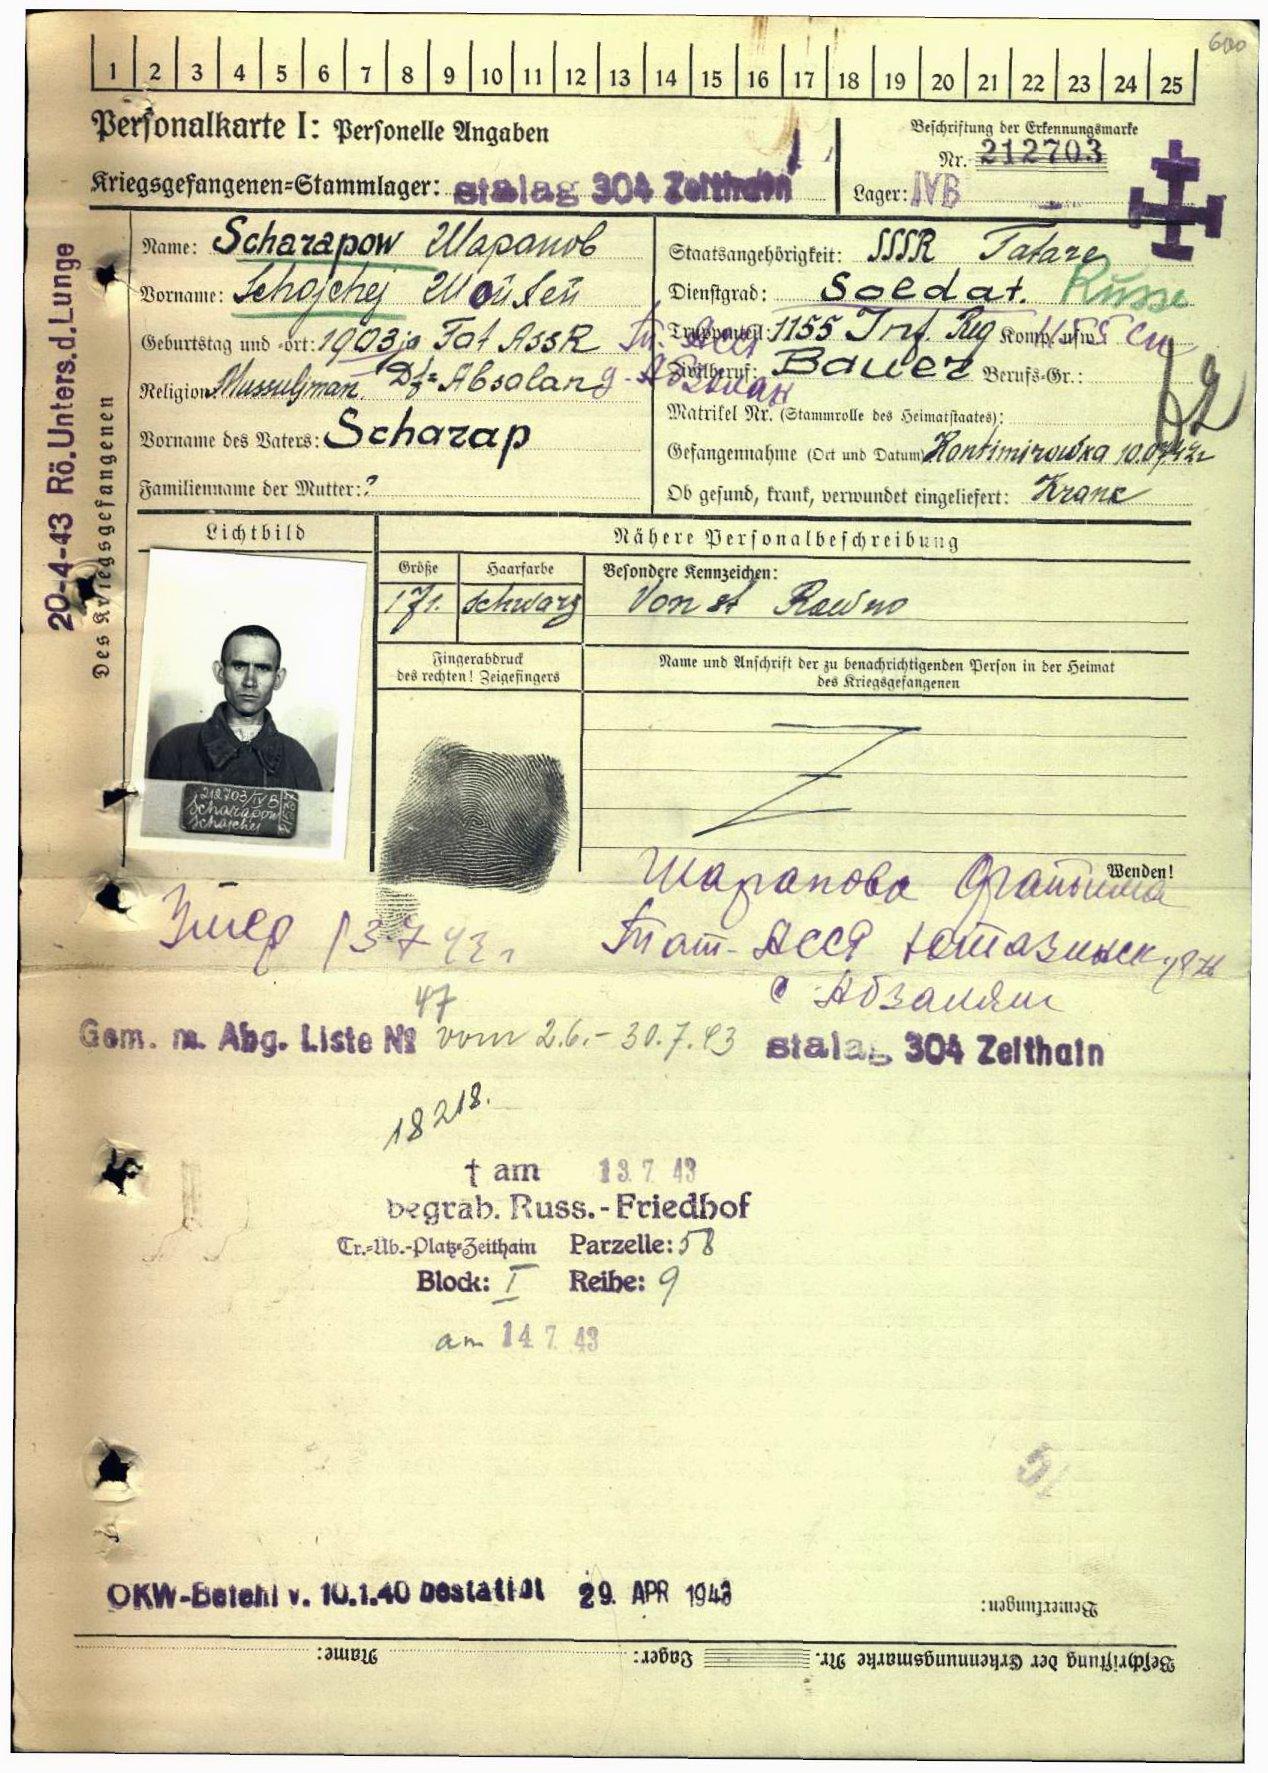 600
1 2 3 4 5 6 7 8 9 10 11 12 13 14 15 16 17 18 19 20 21 22 23 24 25
Personalkarte I: Personelle Angaben
Kriegsgefangenen-Stammlager: Stalag 304 Zeithain
Beschriftung der Erkennungsmarke
Nr. 212703
Lager: IVB
Des Kriegsgefangenen
20-4-43 Rö.Unters.d.Lunge
Name: Scharapow Шарапов
Vorname: Schojchej Шойхей
Geburtstag und -ort: 1903 ja Tat ASSR
Religion: Mussuljman. Df= Absolan
Vorname des Vaters: Scharap
Familienname der Mutter: ?
Staatsangehörigkeit: SSSR Tatare
Russe
Dienstgrad: Soldat.
Truppenteil: 1155 Inf. Reg Komp. usw.
Zivilberuf: Bauer Berufs-Gr.:
Matrikel Nr. (Stammrolle des Heimatstaates):
Gefangennahme (Ort und Datum) Kantimirowka 10.07.42
Ob gesund, krank, verwundet eingeliefert: Krank
Lichtbild
Nähere Personalbeschreibung
Größe Haarfarbe Besondere Kennzeichen:
171. schwarz Von st Rowno
Fingerabdruck
des rechten! Zeigefingers
Name und Anschrift der zu benachrichtigenden Person in der Heimat
des Kriegsgefangenen
212703/IVB
Scharapow
Schojchej
Wenden!
Шарапова Фатыма
Умер 13 7 43 г
Тат-АССР Ютазинск
с Абзалян
47
Gem. m. Abg. Liste № vom 2.6.-30.7.43 Stalag 304 Zeithain
18218.
† am 13 7 43
begrab. Russ.-Friedhof
Tr.-Üb.-Platz-Zeithain Parzelle: 58
Block: I Reihe: 9
am 14 7 43
OKW-Befehl v. 10.1.40 bestätigt 29. APR 1943
Bemerkungen:
Beschriftung der Erkennungsmarke Nr. Lager: Name: